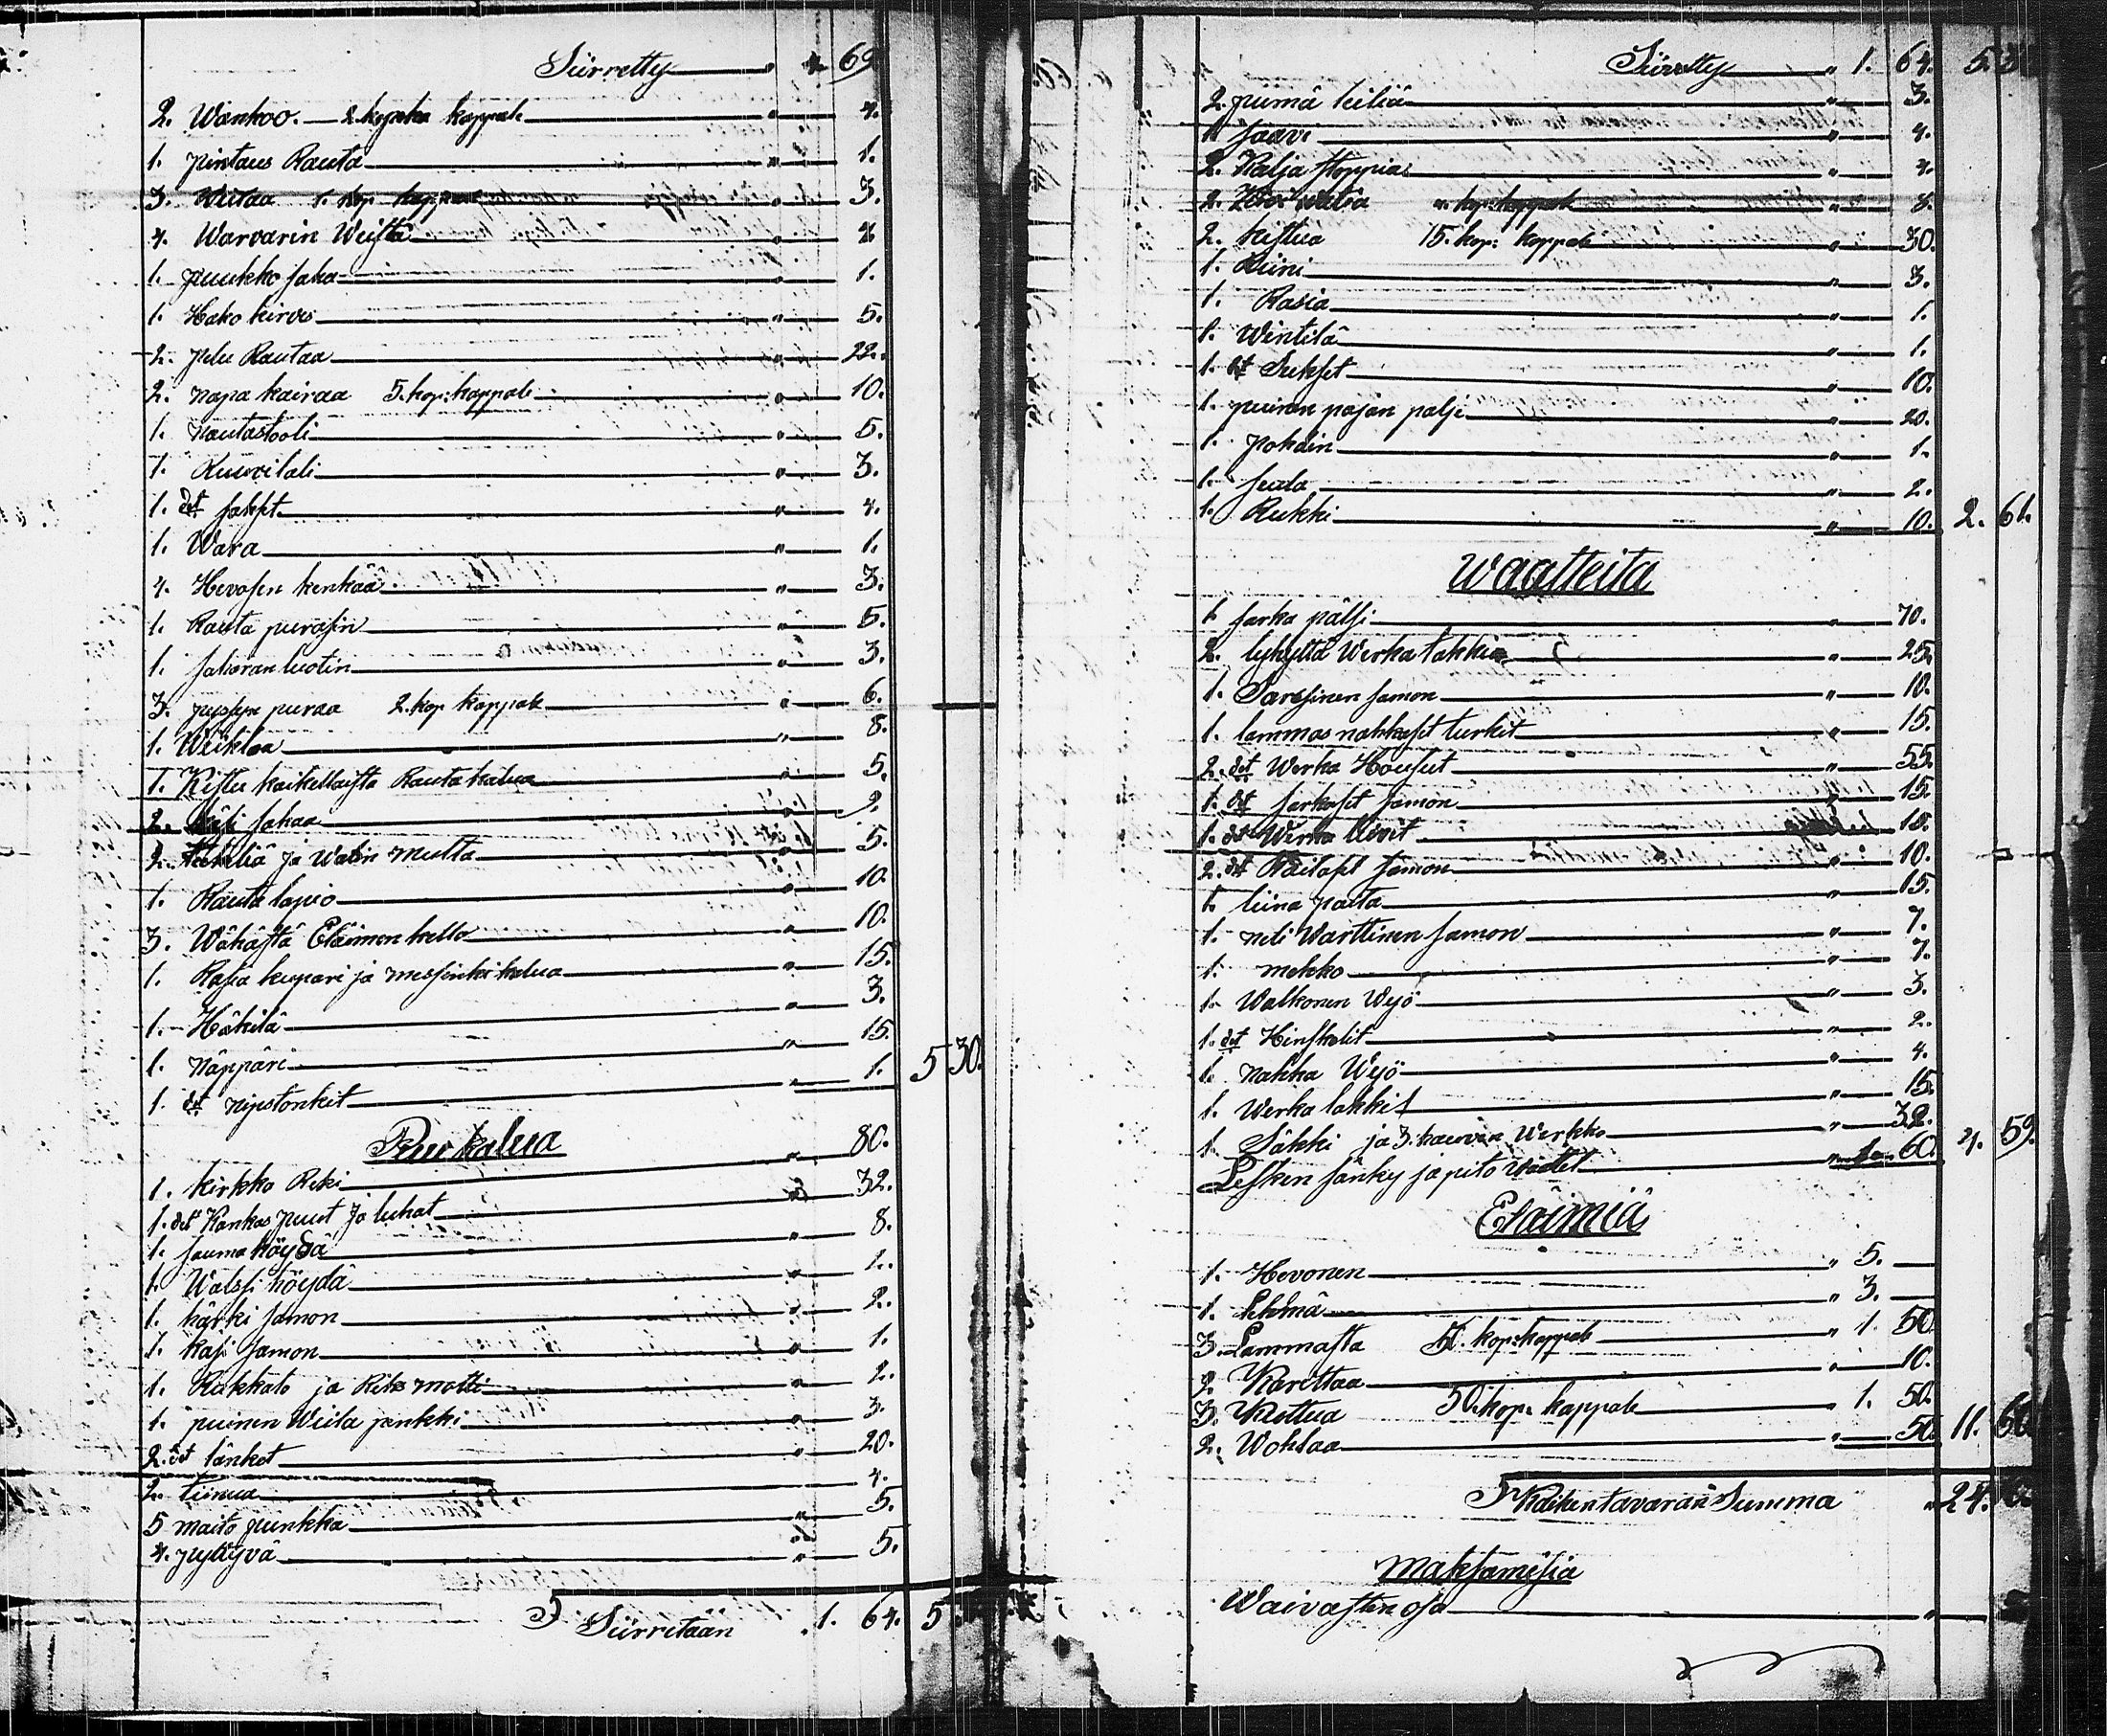 Siirretty " 4. 69
2. Wankoo. — 2. kopeka kappale " 4.
1. pintaus Rauta " 1.
3. Wiilaa 1. kop. kappale " 3.
4. Warvarin Weistä " 4.
1. puukko saha " 1.
1. Hako kirves " 5.
2. pelu Rautaa " 22.
2. napa kairaa 5. kop: kappale " 10.
1. nautastooli " 5.
1. Ruuvitali " 3.
1. det sakset " 4.
1. Wara " 1.
4. Hevosen kenkää " 3.
1. Rauta purasin " 5.
1. sahran luotin " 3.
3. pystyn puraa 2. kop kappale " 6.
1. Weiklaa " 8.
1. Kistu kaikellaista Rauta kalua " 5.
2. käsi sahaa " 2.
2. ja Walin mutta " 5.
1. Rauta lapio " 10.
3. Wähästä Eläimen kello " 10.
1. Rasia kupari ja messinki kalua " 15.
1. Häkilä " 3.
1. Näppäri " 15.
1. det nipstonkit " 1. 5 30.
Puu kalua
1. kirkko Reki " 80.
1. det Kankas puut ja luhat " 32.
1. sauma köydä " 8.
1. Walsji köydä " 1.
1. härki samon " 2.
1. kasi samon " 1.
1. Rukkato ja Reks motti " 2.
1. puinen Wiila penkki " 3.
2. det länket " 20.
2. tiinua " 4.
5 maito punkka " 5.
4. pyttyvä " 5.
Siirretään " 1. 64. 5
Siirretty " 1. 64. 5. 30
2. piimä leiliä " 3.
1. saavi " 4.
2. Kalja stoppia " 4.
2. kop: kappale " 8.
2. kistua 15. kop: kappale " 30.
1. Kiini " 3.
1. Rasia " 1.
1. Wintilä " 1.
1. det Sukset " 10.
1. puinen pajan palje " 20.
1. pohdin " 1.
1. seula " 2.
1. Rukki " 10. 2. 61.
Waatteita
1. sarka pälsi " 70.
2. lyhyttä Werka takkia " 25.
1. Sarssinen samon " 10.
1. lammas nahkaset turkit " 15.
2. det Werka Housut " 55.
1. det sarkaset samon " 15.
1. det Werka liivit " 15.
2. det Räitäset samon " 10.
1. liina paita " 15.
1. neli Warttinen samon " 7.
1. mekko " 7.
1. Walkonen Wyö " 3.
1. det Hinskalit " 2.
1. nahka Wyö " 4.
1. Werka lakki " 15.
1. Säkki ja 3. kauvin Werkko " 32.
Lesken sänky ja pito vaatet " 60. 4. 59.
Eläimiä
1. Hevonen " 5. —
1. Lehmä " 3. —
3. Lammasta 50. kop: kappale " 1. 50
2. Karittaa " 10.
3. Wuttua 50. kop: kappale " 1. 50.
2. Wohlaa " 50. 11. 60
Kaikentavaran Summa " 24.
Maksamisia
Waivasten osa "